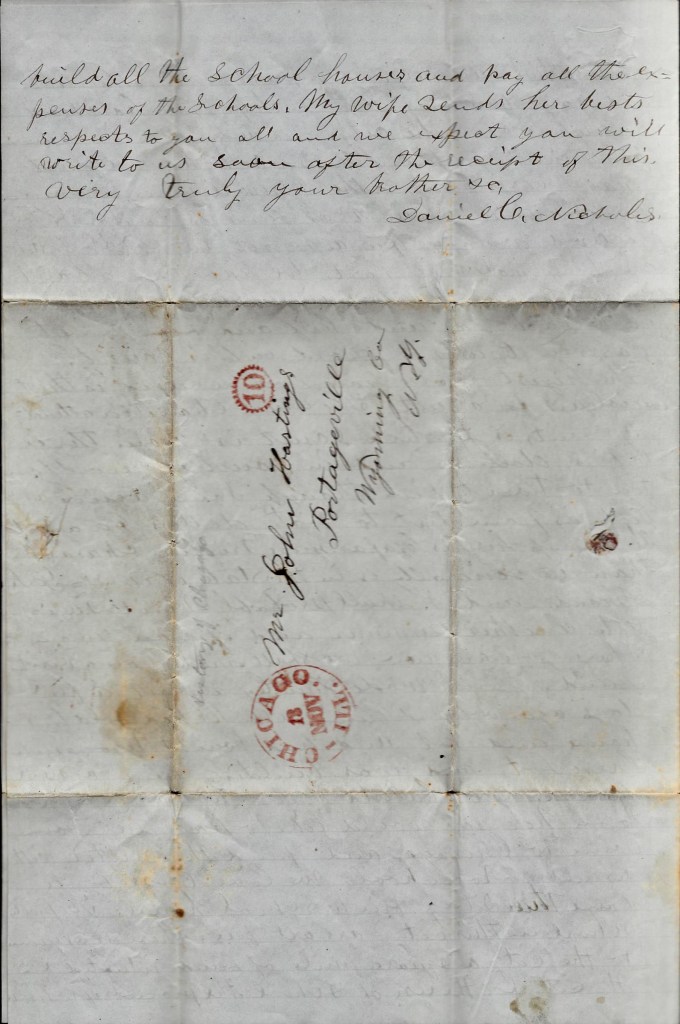 build all the School houses and pay all the ex=
penses of the Schools. My wife Sends her bests
respects to you all and we expect you will
write to us soon after the receipt of this.
Very truly your brother &c,
Daniel C. Nicholes
10
Mr. John Hastings
Portageville
Wyoming Co
N. Y.
CHICAGO. ILL.
13
NOV